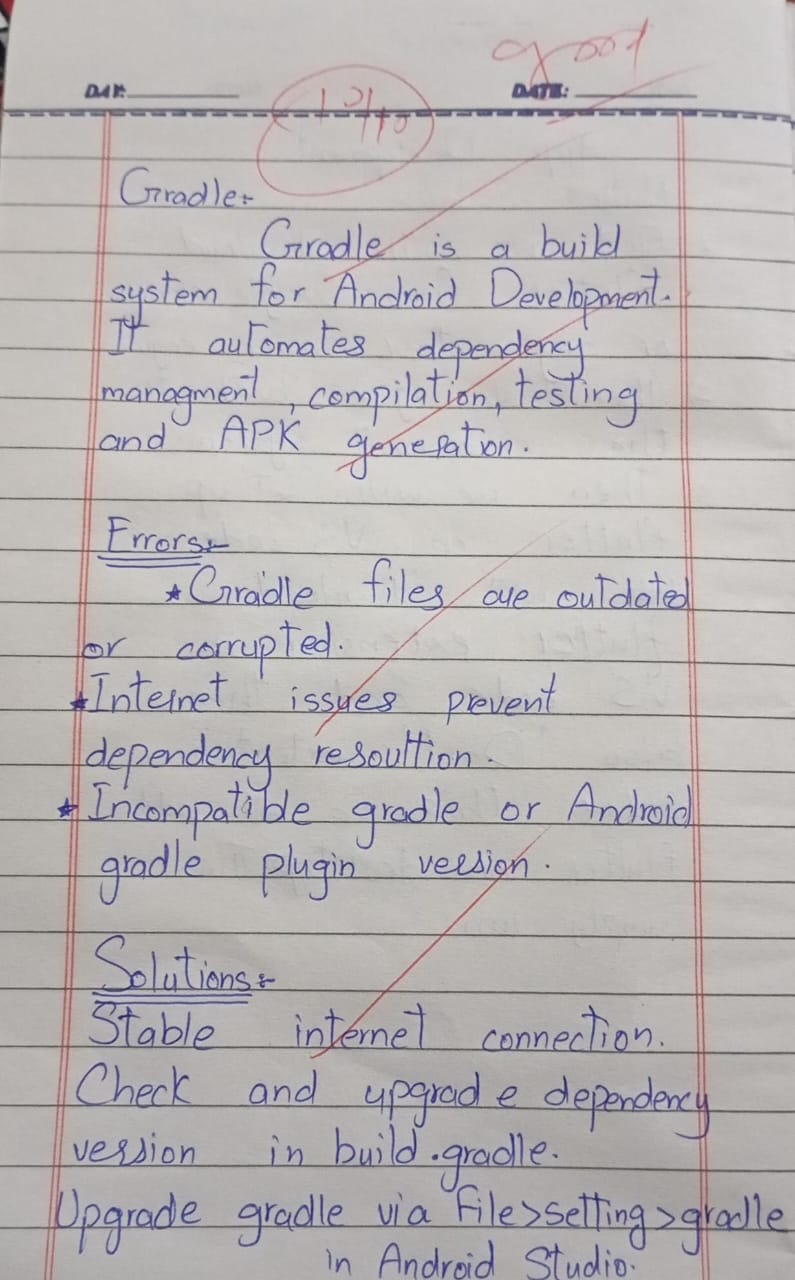 good
DAY:
DATE:
10/10
Gradle:-
Gradle is a build
system for Android Development.
It automates dependency
managment, compilation, testing
and APK generation.
Errors:-
* Gradle files are outdated
or corrupted.
* Internet issues prevent
dependency resoultion.
* Incompatible gradle or Android
gradle plugin version.
Solutions:-
Stable internet connection.
Check and upgrade dependency
version in build.gradle.
Upgrade gradle via File>setting>gradle
in Android Studio.